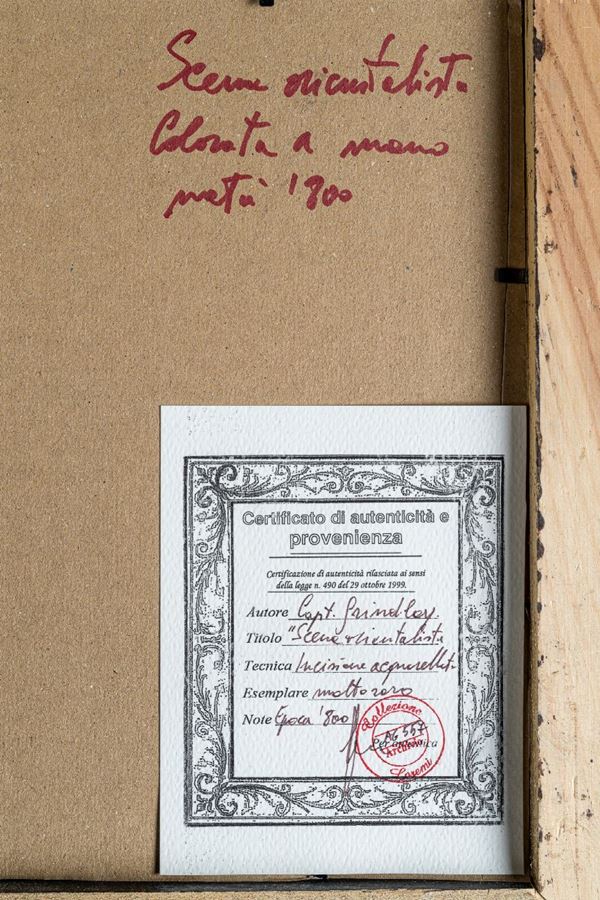 Scena orientalista
Colorata a mano
metà '800
Certificato di autenticità e
provenienza
Certificazione di autenticità rilasciata ai sensi
della legge n. 490 del 29 ottobre 1999.
Autore Capt. Grindlay
Titolo "Scena orientalista
Tecnica Incisione acquerellata
Esemplare molto raro
Note Epoca '800
Collezione
AG 557
ARCHIVIO
Per autentica
Loremi